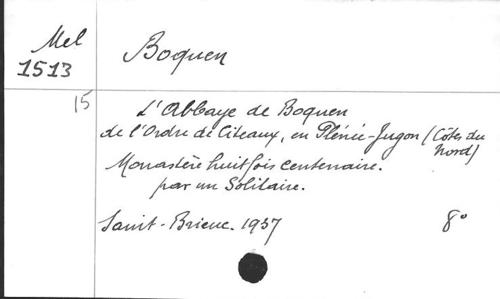 Mel
1513
Boquen
15
L'Abbaye de Boquen
de l'Ordre de Citeaux, en Plénée-Jugon (Côtes du Nord)
Monastère huit fois centenaire.
par un Solitaire.
Saint-Brieuc. 1937
8°